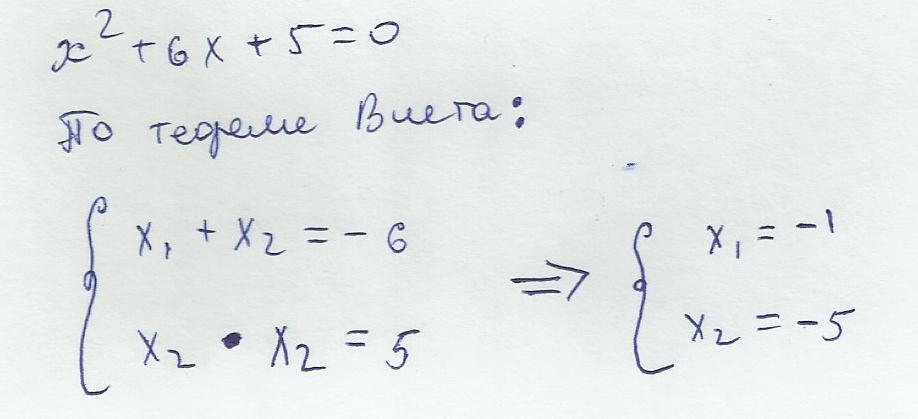 x² + 6x + 5 = 0
По теореме Виета:
{ x₁ + x₂ = - 6
x₂ • x₂ = 5
⇒
{ x₁ = -1
x₂ = -5